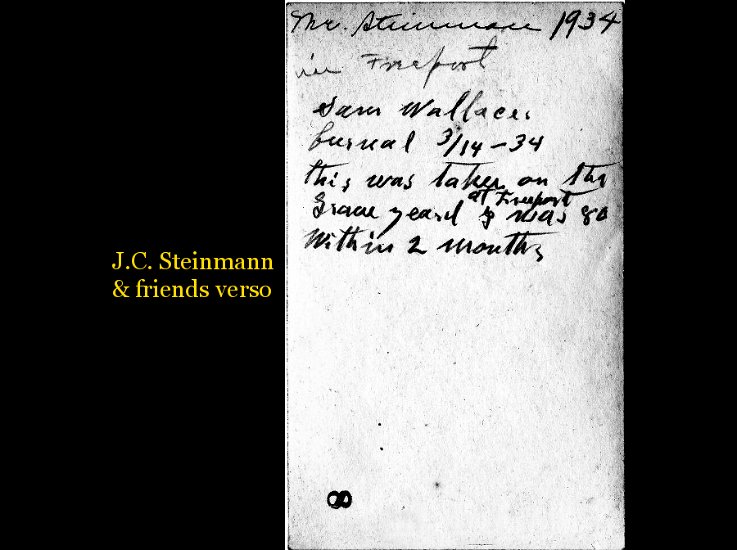 Mr. Steinmann 1934
in Freeport
Sam Wallaces
burual 3/14-34
this was taken on the
at Freeport
Grave yeard I was 80
Within 2 months
J.C. Steinmann
& friends verso
8